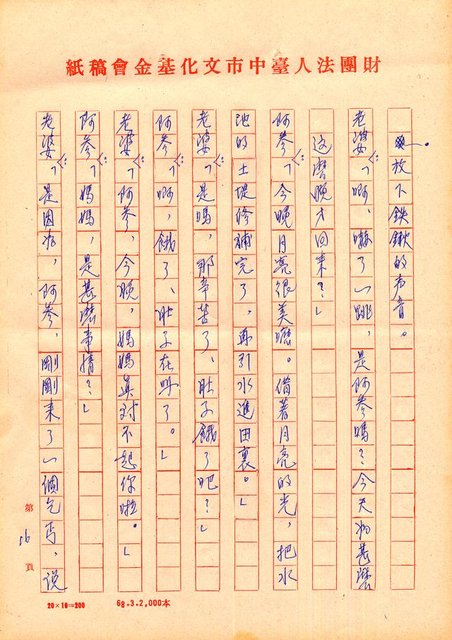 財團法人臺中市文化基金會稿紙
放下鐵鍬的声音。
老婆:「啊、嚇了一跳,是阿參嗎?今天為甚麼
这麼晚才回来?」
阿參:「今晚月亮很美麗。借着月亮的光,把水
池的土堤修補完了,再引水進田裏。」
老婆:「是嗎,那辛苦了、肚子餓了吧?」
阿參:「啊,餓了、肚子在叫了。」
老婆:「阿參,今晚,媽媽真对不起你啦。」
阿參:「媽媽,是甚麼事情?」
老婆:「是因為,阿參,剛剛来了一個乞丐,说
第16頁
20×10=200 68.3.2,000本